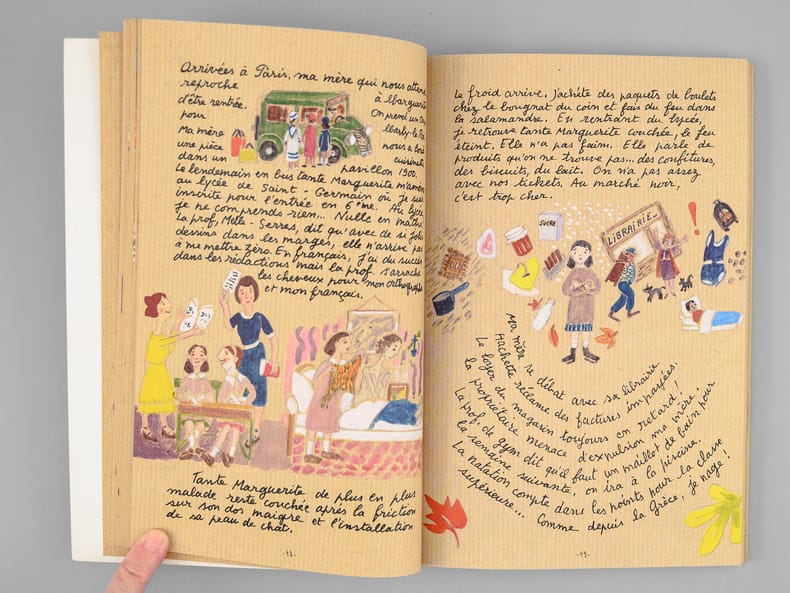 Arrivées à Paris, ma mère qui nous attend
reproche à Marguerite
d'être rentrée. On prend un
pour liberty-le
Ma mère nous a
une pièce cuisinette
dans un pavillon 1900.
Le lendemain en bus tante Marguerite m'amène
au lycée de Saint-Germain où je suis
inscrite pour l'entrée en 6ème. Au lycée
je ne comprends rien... Nulle en maths
La prof, Melle Serres, dit qu'avec de si jolis
dessins dans les marges, elle n'arrive pas
à me mettre zéro. En français, j'ai du succès
dans les rédactions mais la prof s'arrache
les cheveux pour mon orthographe
et mon français.
Tante Marguerite de plus en plus
malade reste couchée après la friction
sur son dos maigre et l'installation
de sa peau de chat.
Le froid arrive, j'achète des paquets de boulets
chez le bougnat du coin et fais du feu dans
la salamandre. En rentrant du lycée,
je retrouve tante Marguerite couchée, le feu
éteint. Elle n'a pas faim. Elle parle de
produits qu'on ne trouve pas... des confitures,
des biscuits, du lait. On n'a pas assez
avec nos tickets. Au marché noir,
c'est trop cher.
SUCRE
LIBRAIRIE
!
Ma mère se débat avec sa librairie.
Hachette réclame des factures impayées.
Le loyer du magasin toujours en retard!
la propriétaire menace d'expulsion ma mère.
La prof de gym dit qu'il faut un maillot de bain pour
la semaine suivante, on ira à la piscine.
La natation compte dans les points pour la classe
supérieure... Comme depuis la Grèce, je nage!
-11-